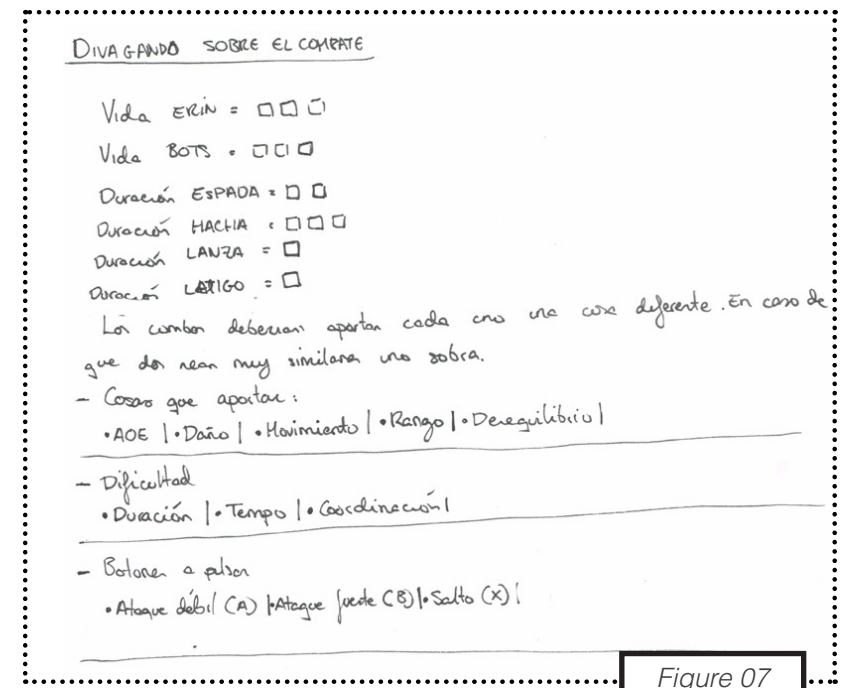 DIVAGANDO SOBRE EL COMBATE
Vida ERIN = □□□
Vida BOTS = □□□
Duración ESPADA = □□
Duración HACHA = □□□
Duración LANZA = □
Duración LATIGO = □
Los combos deberían aportar cada uno una cosa diferente. En caso de
que dos sean muy similares uno sobra.
- Cosas que aportar:
•AOE |•Daño |•Movimiento |•Rango |•Desequilibrio|
- Dificultad
•Duración |•Tempo |•Coordinación|
- Botones a pulsar
•Ataque débil (A) |•Ataque fuerte (B)|•Salto (X)|
Figure 07